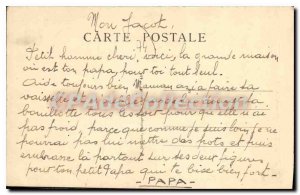 Mon Jacot,
CARTE POSTALE
Petit homme chéri, voici, la grande maison
où est ton papa, pour toi tout seul.
Aide toujours bien Maman à faire sa
vaisselle
bouillotte tous les soir pour qu'elle n'ai
pas froid, parce que comme je suis loin je ne
pourrai pas lui mettre des pots et puis
embrasse la partout sur ses deux figures
pour ton petit Papa qui te bise bien fort.
- PAPA -